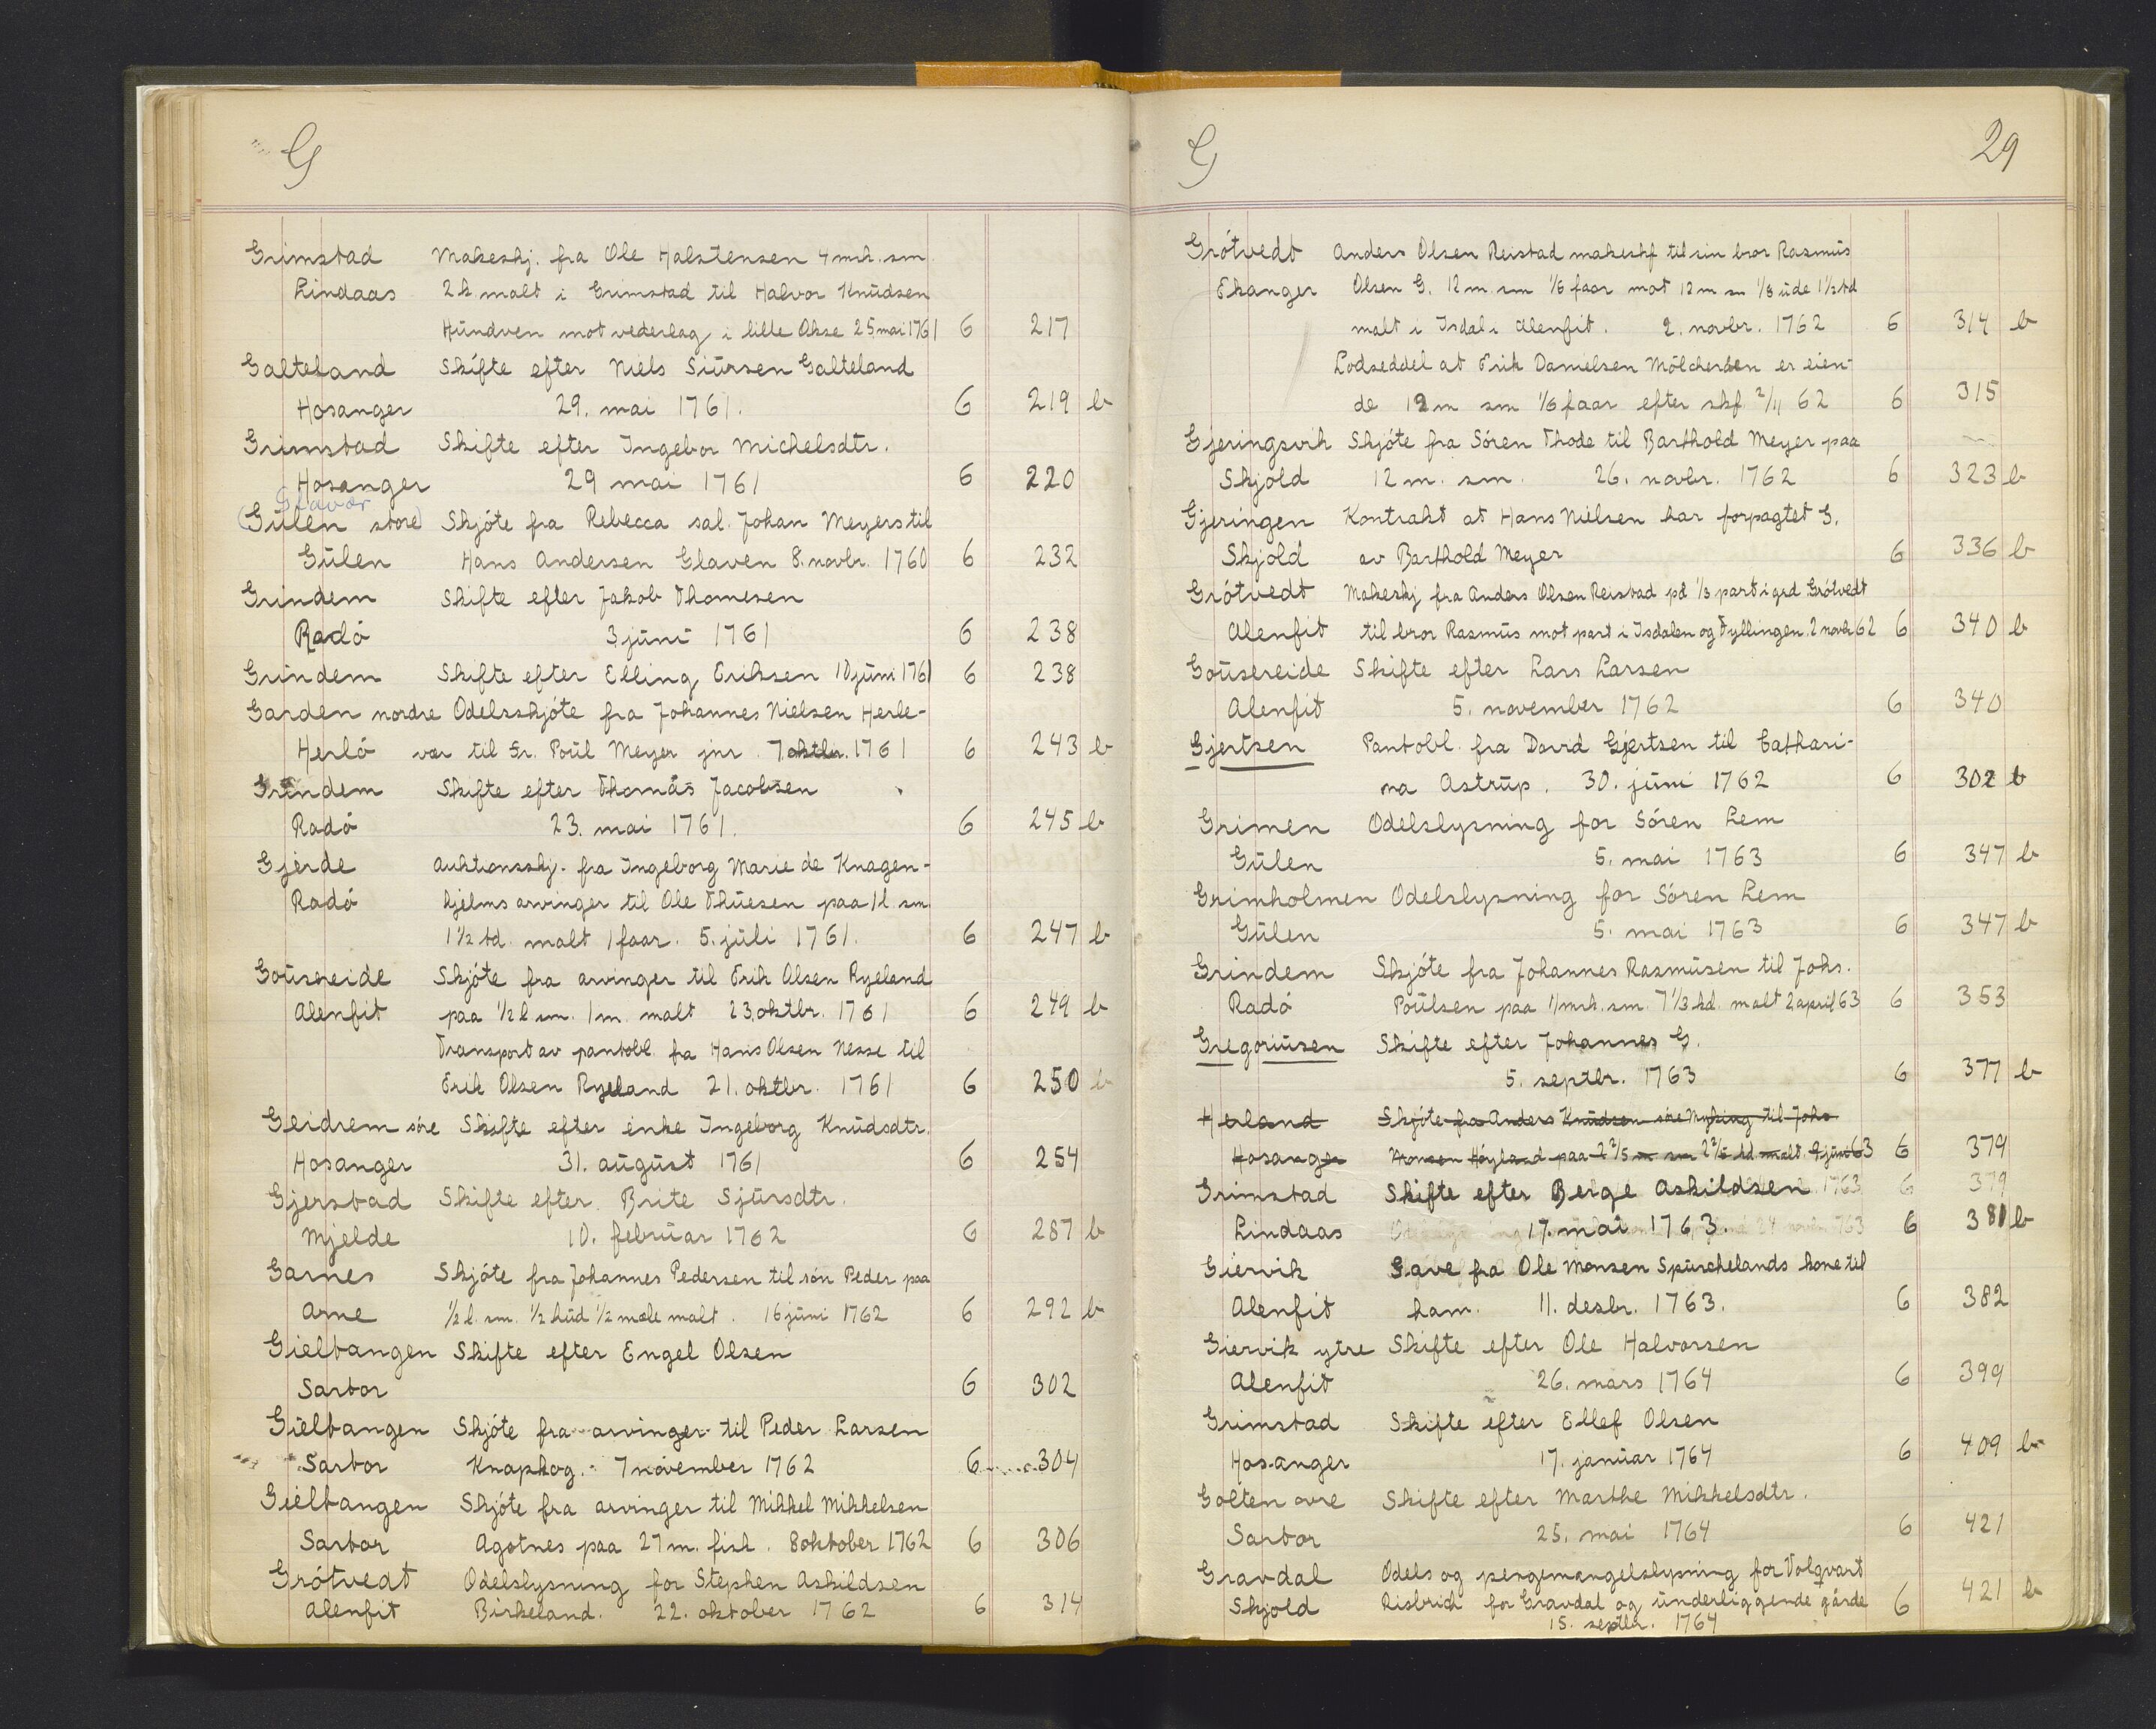 G
Grimstad Makeskj. fra Ole Halstensen 4 mrk. sm
Lindaas 2 k malt i Grimstad til Halvor Knudsen
Hundven mot vederlag i lille Okse 25 mai 1761 6 217
Galteland Skifte efter Niels Siursen Galteland
Hosanger 29. mai 1761. 6 219 b
Grimstad Skifte efter Ingebor Michelsdtr.
Hosanger 29 mai 1761 6 220
Glavær
(Gulen store) Skjóte fra Rebecca sal. Johan Meyers til
Gulen Hans Andersen Glaven 8. novbr. 1760 6 232
Grindem Skifte efter Jakob Thomesen
Radó 3 juni 1761 6 238
Grindem Skifte efter Elling Eriksen 10 juni 1761 6 238
Garden nordre Odelsskjóte fra Johannes Nielsen Herle-
Herló vær til Sr. Poul Meyer jnr. 7 oktbr. 1761 6 243 b
Grindem Skifte efter Thomas Jacobsen
Radó 23. mai 1761. 6 245 b
Gjerde Auktionsskj. fra Ingeborg Marie de Knagen-
Radó hjelms arvinger til Ole Thuesen paa 1 l sm
1½ td. malt 1 faar. 5. juli 1761. 6 247 b
Gousereide Skjóte fra arvinger til Erik Olsen Ryeland
Alenfit paa ½ l sm. 1 m. malt 23. oktbr. 1761 6 249 b
Transport av pantobl. fra Hans Olsen Nesse til
Erik Olsen Ryeland 21. oktbr. 1761 6 250 b
Geidrem sóre Skifte efter enke Ingeborg Knudsdtr.
Hosanger 31. august 1761 6 254
Gjerstad Skifte efter Brite Sjursdtr.
Mjelde 10. februar 1762 6 287 b
Garnes Skjóte fra Johannes Pedersen til són Peder paa
Arne ½ l. sm. ½ hud ½ mæle malt. 16 juni 1762 6 292 b
Gieltangen Skifte efter Engel Olsen
Sartor 6 302
Gieltangen Skjóte fra arvinger til Peder Larsen
Sartor Knapskog. 7 november 1762 6 304
Gieltangen Skjóte fra arvinger til Mikkel Mikkelsen
Sartor Agotnes paa 27 m. fisk. 8 oktober 1762 6 306
Grótvedt Odelslysning for Stephen Askildsen
Alenfit Birkeland. 22. oktober 1762 6 314
G 29
Grótvedt Anders Olsen Reistad makeskf til sin bror Rasmus
Ekanger Olsen G. 12 m sm 1/6 faar mot 12 m sm 1/8 ude 1½ td
malt i Isdal i Alenfit. 2. novbr. 1762 6 314 b
Lodseddel at Erik Danielsen Mólcherden er eien-
de 12 m sm 1/6 faar efter skf. 2/11 62 6 315
Gjeringsvik Skjóte fra Sóren Thode til Barthold Meyer paa
Skjold 12 m. sm. 26. novbr. 1762 6 323 b
Gjeringen Kontrakt at Hans Nielsen har forpagtet G.
Skjold av Barthold Meyer 6 336 b
Grótvedt Makeskj fra Anders Olsen Reistad på 1/3 part i grd Grótvedt
Alenfit til bror Rasmus mot part i Isdalen og Fyllingen. 2 novbr 62 6 340 b
Gousereide Skifte efter Lars Larsen
Alenfit 5. november 1762 6 340
Gjertsen Pantobl. fra David Gjertsen til Cathari-
na Astrup. 30. juni 1762 6 302 b
Grimen Odelslysning for Sóren Lem
Gulen 5. mai 1763 6 347 b
Grimholmen Odelslysning for Sóren Lem
Gulen 5. mai 1763 6 347 b
Grindem Skjóte fra Johannes Rasmusen til Johs.
Radó Poulsen paa 11 mrk. sm. 7 1/3 kd. malt 2 april 63 6 353
Gregoriusen Skifte efter Johannes G.
5. septbr. 1763 6 377 b
Herland Skjóte fra Anders Knudsen sóre Myking til Johs
Hosanger Monsen Hóyland paa 2 2/5 m sm 2 2/5 kd malt. 9 juni 63 6 379
Grimstad Skifte efter Berge Askildsen 1763 6 379
Lindaas 17. mai 1763. 6 381 b
Giervik Gave fra Ole Monsen Spurchelands kone til
Alenfit ham. 11. desbr. 1763. 6 382
Giervik ytre Skifte efter Ole Halvorsen
Alenfit 26. mars 1764 6 399
Grimstad Skifte efter Ellef Olsen
Hosanger 17. januar 1764 6 409 b
Golten óvre Skifte efter Marthe Mikkelsdtr.
Sartor 25. mai 1764 6 421
Gravdal Odels og pengemangelslysning for Volqvart
Skjold Risbrich for Gravdal og underliggende gårde 6 421 b
15. septbr. 1764